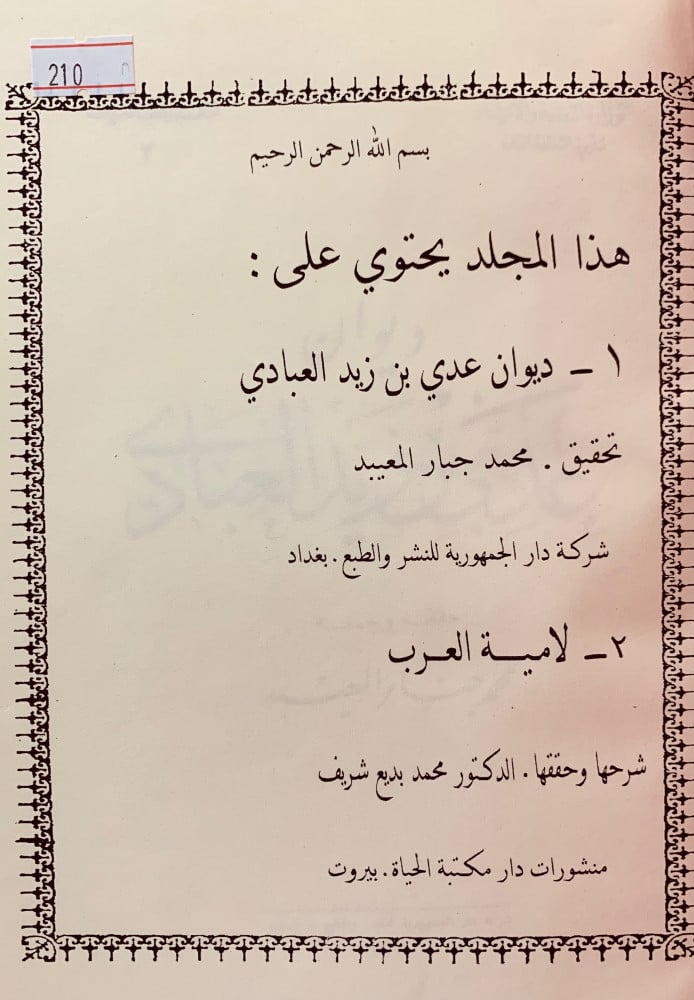 210
بسم الله الرحمن الرحيم
هذا المجلد يحتوي على :
١ ـ ديوان عدي بن زيد العبادي
تحقيق . محمد جبار المعيبد
شركة دار الجمهورية للنشر والطبع . بغداد
٢ ـ لامية العرب
شرحها وحققها . الدكتور محمد بديع شريف
منشورات دار مكتبة الحياة . بيروت